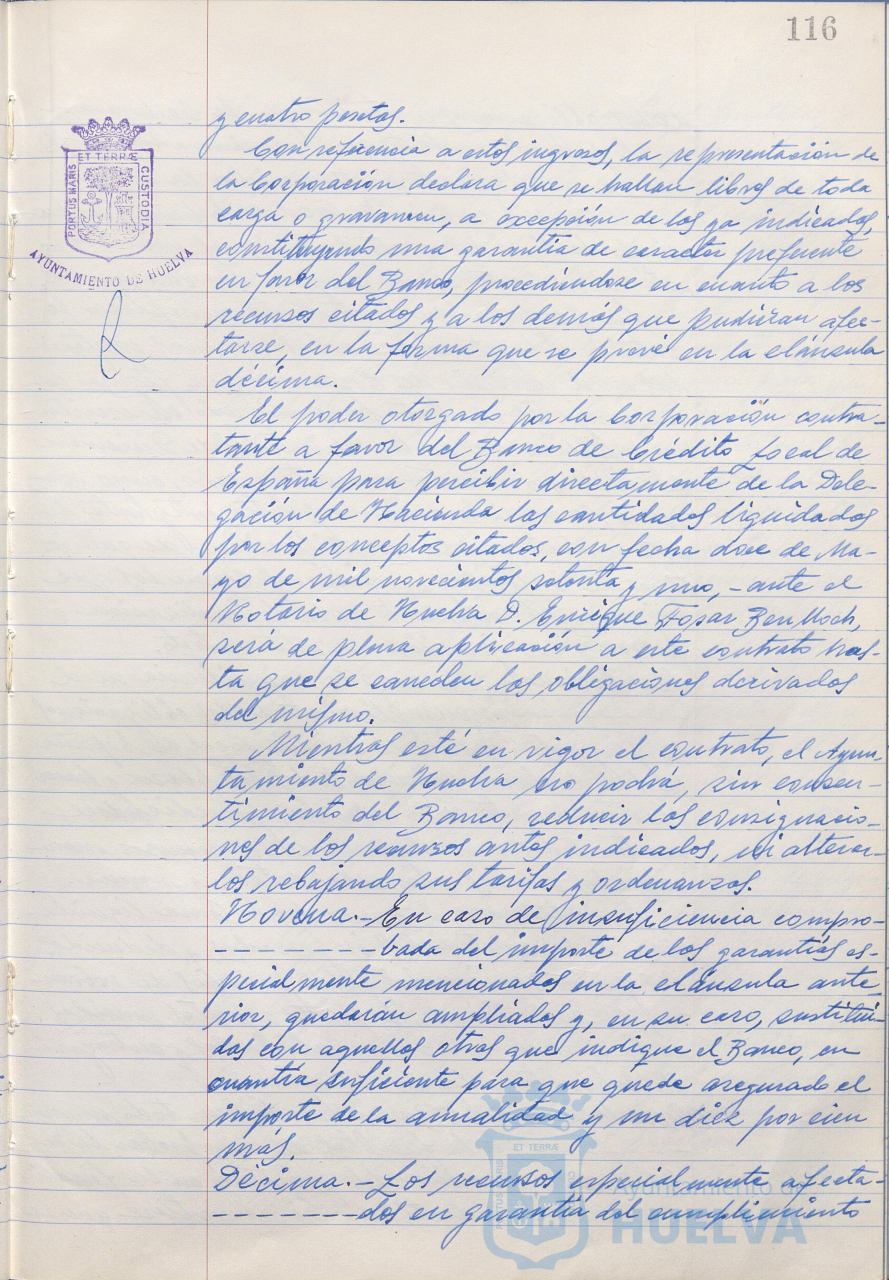 116
ET TERRÆ
PORTUS MARIS
CUSTODIA
AYUNTAMIENTO DE HUELVA
y cuatro pesetas.
Con referencia a estos ingresos, la representación de
la Corporación declara que se hallan libres de toda
carga o gravamen, a excepción de los ya indicados,
constituyendo una garantía de caracter preferente
en favor del Banco, procediendose en cuanto a los
recursos citados y a los demás que pudieran afec-
tarse, en la forma que se prevé en la cláusula
décima.
El poder otorgado por la Corporación contra-
tante a favor del Banco de Crédito Local de
España para percibir directamente de la Dele-
gación de Hacienda las cantidades liquidadas
por los conceptos citados, con fecha doce de Ma-
yo de mil novecientos setenta y uno, - ante el
Notario de Huelva D. Enrique Fosar Benlloch,
será de plena aplicación a este contrato has-
ta que se cancelen las obligaciones derivadas
del mismo.
Mientras esté en vigor el contrato, el Ayun-
tamiento de Huelva no podrá, sin consen-
timiento del Banco, reducir las consignacio-
nes de los recursos antes indicados, ni alterar-
los rebajando sus tarifas y ordenanzas.
Novena.- En caso de insuficiencia compro-
- - - - - - - - bada del importe de las garantías es-
pecialmente mencionadas en la cláusula ante-
rior, quedarán ampliadas y, en su caso, sustitui-
das con aquellas otras que indique el Banco, en
cuantía suficiente para que quede asegurado el
importe de la anualidad y un diez por cien
más.
Décima.- Los recursos especialmente afecta-
- - - - - - - dos en garantía del cumplimiento
ET TERRÆ
PORTUS MARIS
Ayuntamiento de
HUELVA